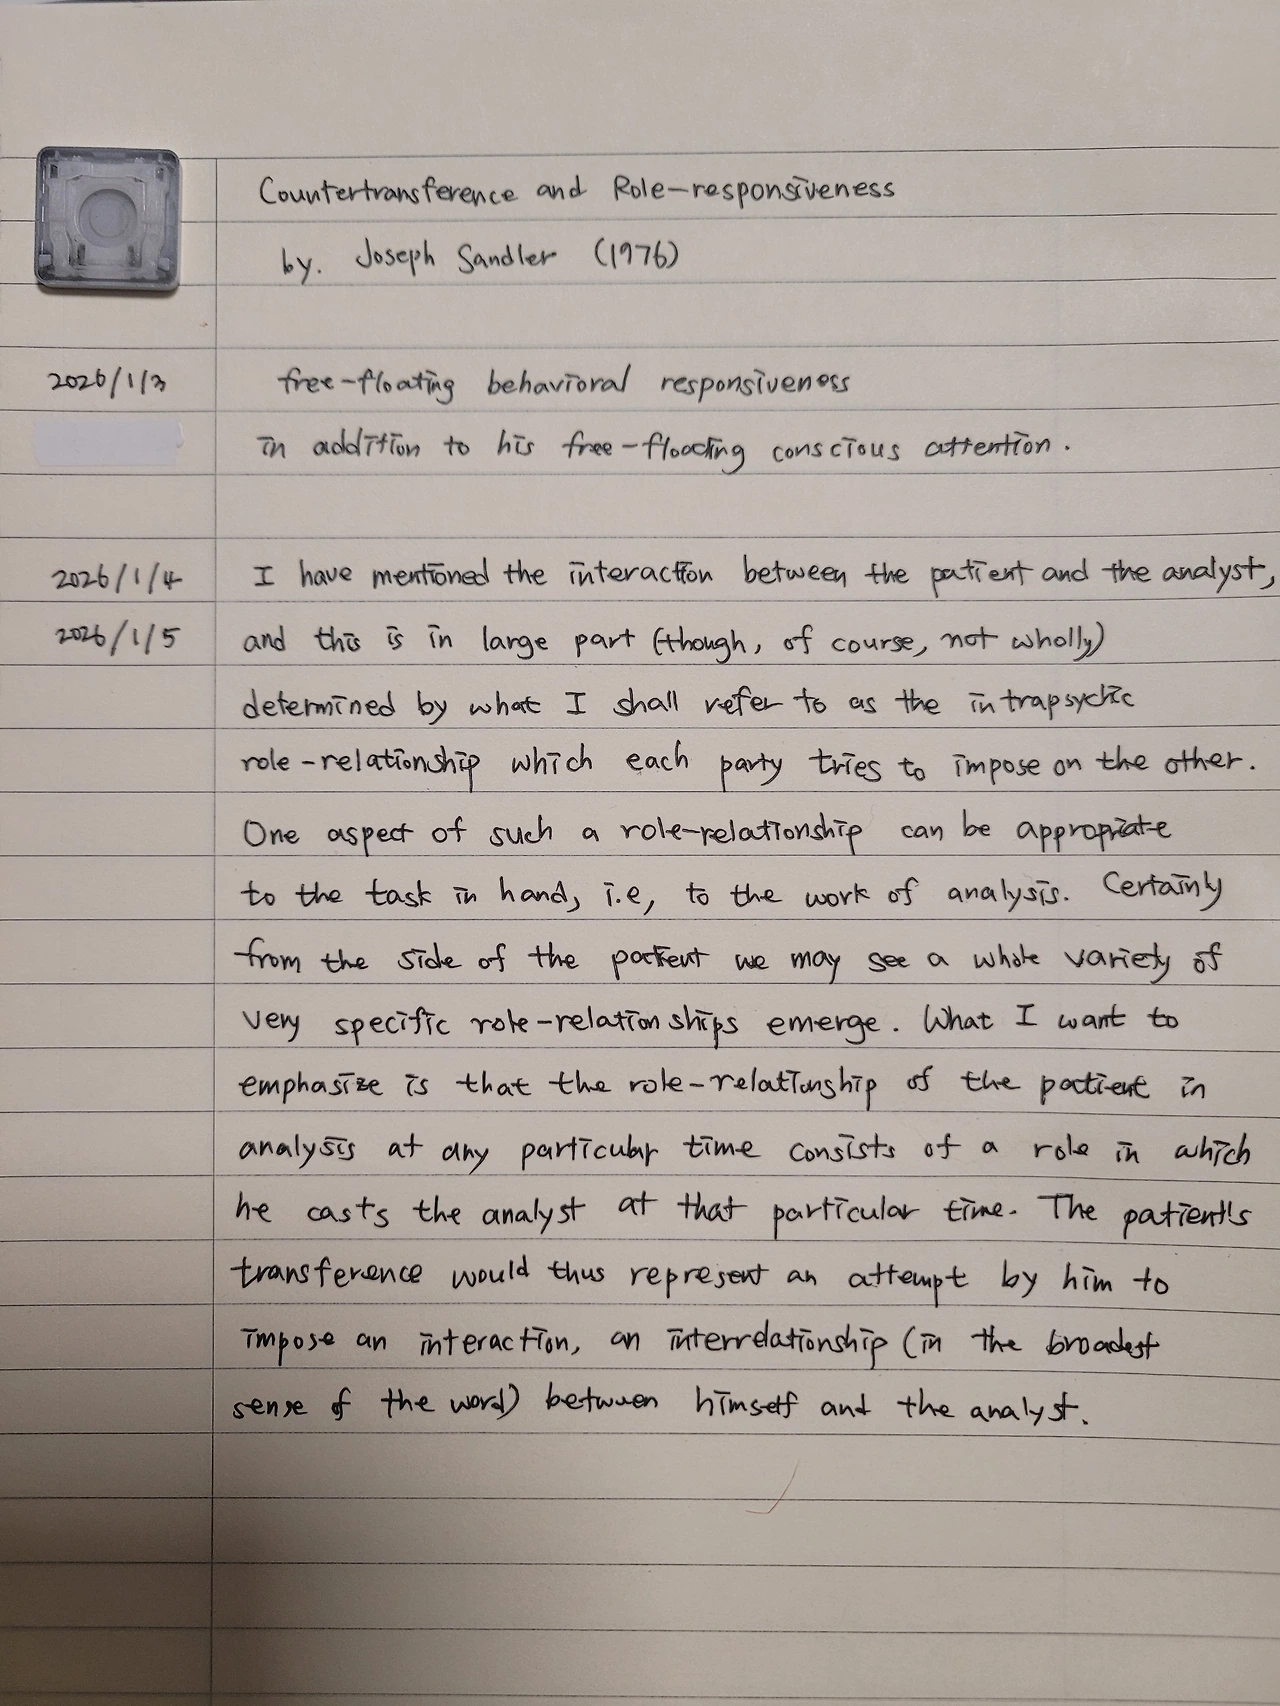 Countertransference and Role-responsiveness
by. Joseph Sandler (1976)
2026/1/3 free-floating behavioral responsiveness
in addition to his free-floading conscious attention.
2026/1/4 I have mentioned the interaction between the patient and the analyst,
2026/1/5 and this is in large part (though, of course, not wholly)
determined by what I shall refer to as the intrapsychic
role-relationship which each party tries to impose on the other.
One aspect of such a role-relationship can be appropriate
to the task in hand, i.e, to the work of analysis. Certainly
from the side of the patient we may see a whole variety of
very specific role-relationships emerge. What I want to
emphasize is that the role-relationship of the patient in
analysis at any particular time consists of a role in which
he casts the analyst at that particular time. The patient's
transference would thus represent an attempt by him to
impose an interaction, an interrelationship (in the broadest
sense of the word) between himself and the analyst.